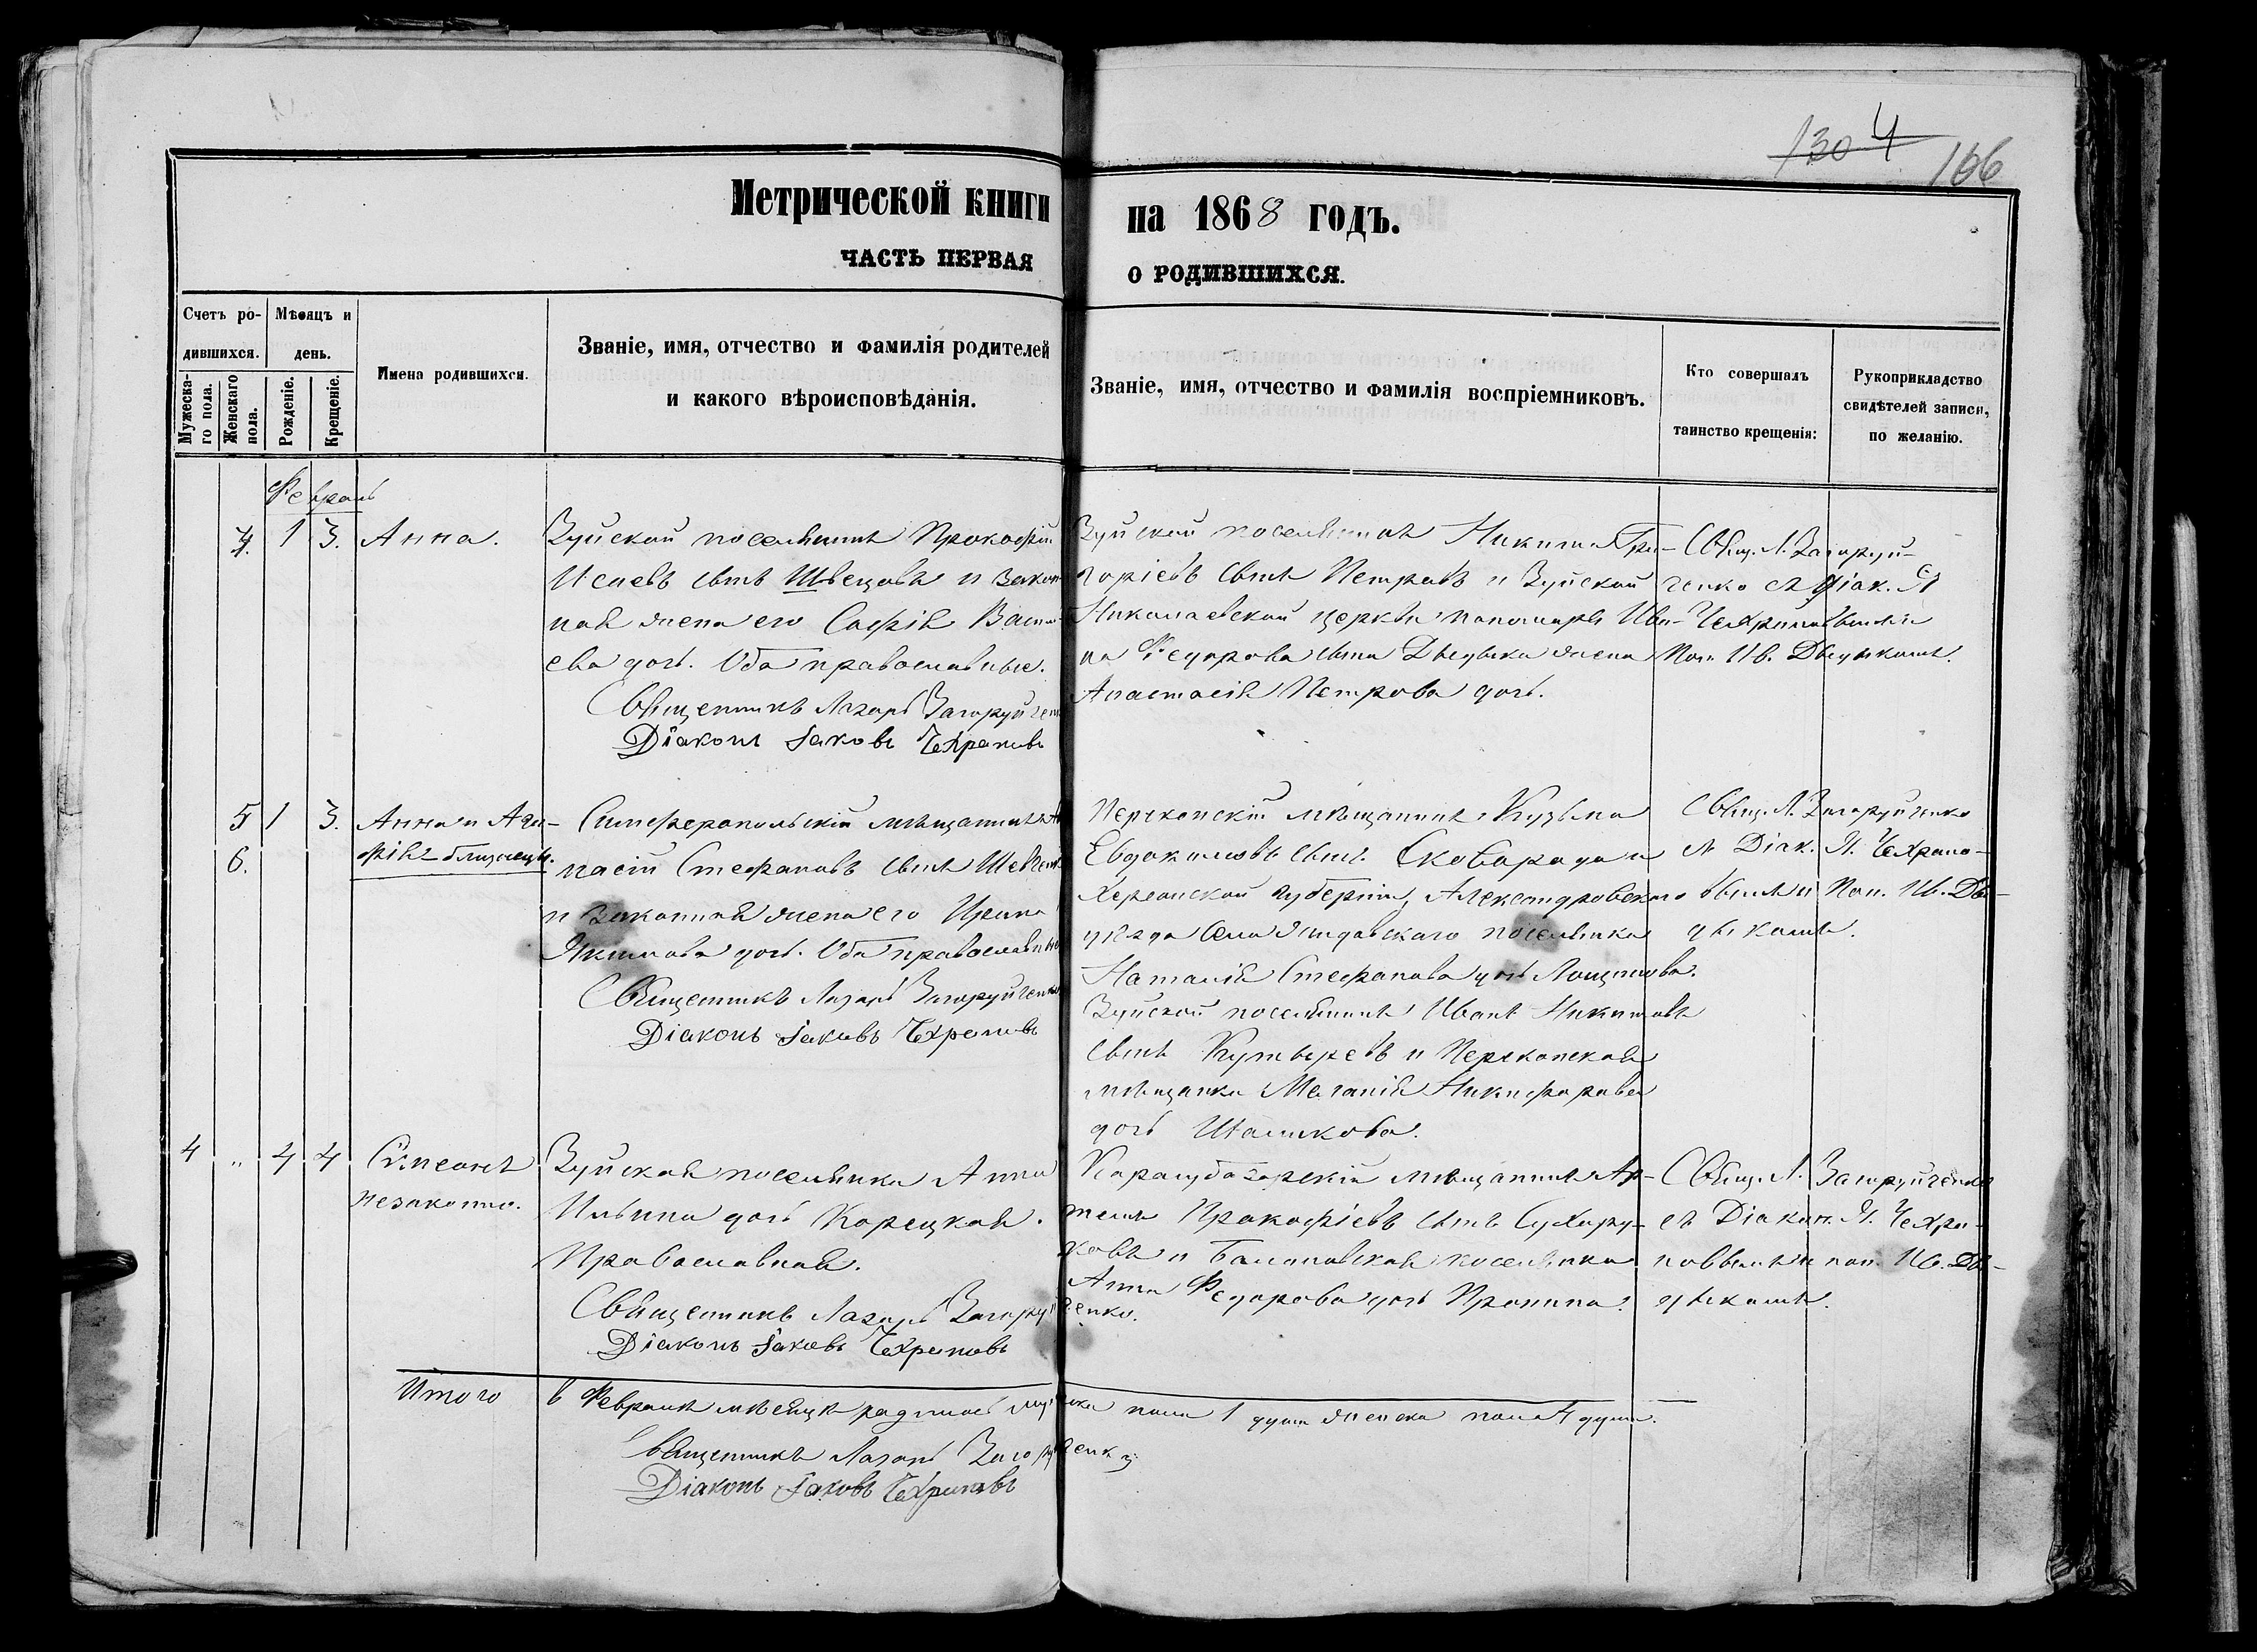 130 4
166
Метрической книги на 1868 годъ.
ЧАСТЬ ПЕРВАЯ О РОДИВШИХСЯ.
Счетъ ро-
дившихся.
Мужеска-
го пола.
Женскаго
пола.
Мѣсяцъ и
день.
Рожденіе.
Крещеніе.
Имена родившихся.
Званіе, имя, отчество и фамилія родителей
и какого вѣроисповѣданія.
Званіе, имя, отчество и фамилія воспріемниковъ.
Кто совершалъ
таинство крещенія:
Рукоприкладство
свидѣтелей записи,
по желанію.
Февраль
4. 1 3. Анна.
Зуйской поселянинъ Прокофій
Исаевъ сынъ Швецовъ и закон
ная жена его Софія Васил
ева дочь. Оба православные.
Священникъ Лазарь Загоруйчен
Діаконъ Іаковъ Чехрановъ
Зуйской поселянинъ Никита Гри-
горіевъ сынъ Петровъ и Зуйской
Николаевской церкви пономаря Ива-
на Федорова сына Дведенка жена
Анастасія Петрова дочь.
Свящ. Л. Загоруй-
ченко съ Діак. Я
Чехрановымъ и
Пон. Ив.
5 1 3. Анна и Ага-
6. фія близнецы.
Симферопольскій мѣщанинъ
насій Стефановъ сынъ Шевченк
и законная жена его Ирина
Якимова дочь. Оба православны
Священникъ Лазарь Загоруйченко
Діаконъ Іаковъ Чехрановъ
Перекопскій мѣщанинъ Кузьма
Евдокимовъ сынъ Сковорода и
Херсонской губерніи, Александровскаго
уѣзда села поселянка
Наталія Стефанова дочь
Зуйской поселянинъ Иванъ Никитовъ
сынъ Кутыревъ и Перекопская
мѣщанка Меланія Никифорова
дочь
Свящ. Л. Загоруйченко
съ Діак. Я. Чехрано-
вымъ и Пон. Ив.
4 " 4 4 Симеонъ
незаконно.
Зуйская поселянка Анна
Ильина дочь Корецкая.
Православная.
Священникъ Лазарь Загоруйченко.
Діаконъ Іаковъ Чехрановъ
Карасубазарскій мѣщанинъ Ар-
темъ Прокофіевъ сынъ Сухору-
ковъ и поселянка
Анна Федорова дочь Пронина.
Свящ. Л. Загоруйченко
съ Діакон. Я. Чехра-
новымъ и пон. Ив.
Итого в Февралѣ мѣсяцѣ родилось мужска пола 1 душа женска пола 4 души.
Священникъ Лазарь Загоруйченко
Діаконъ Іаковъ Чехрановъ